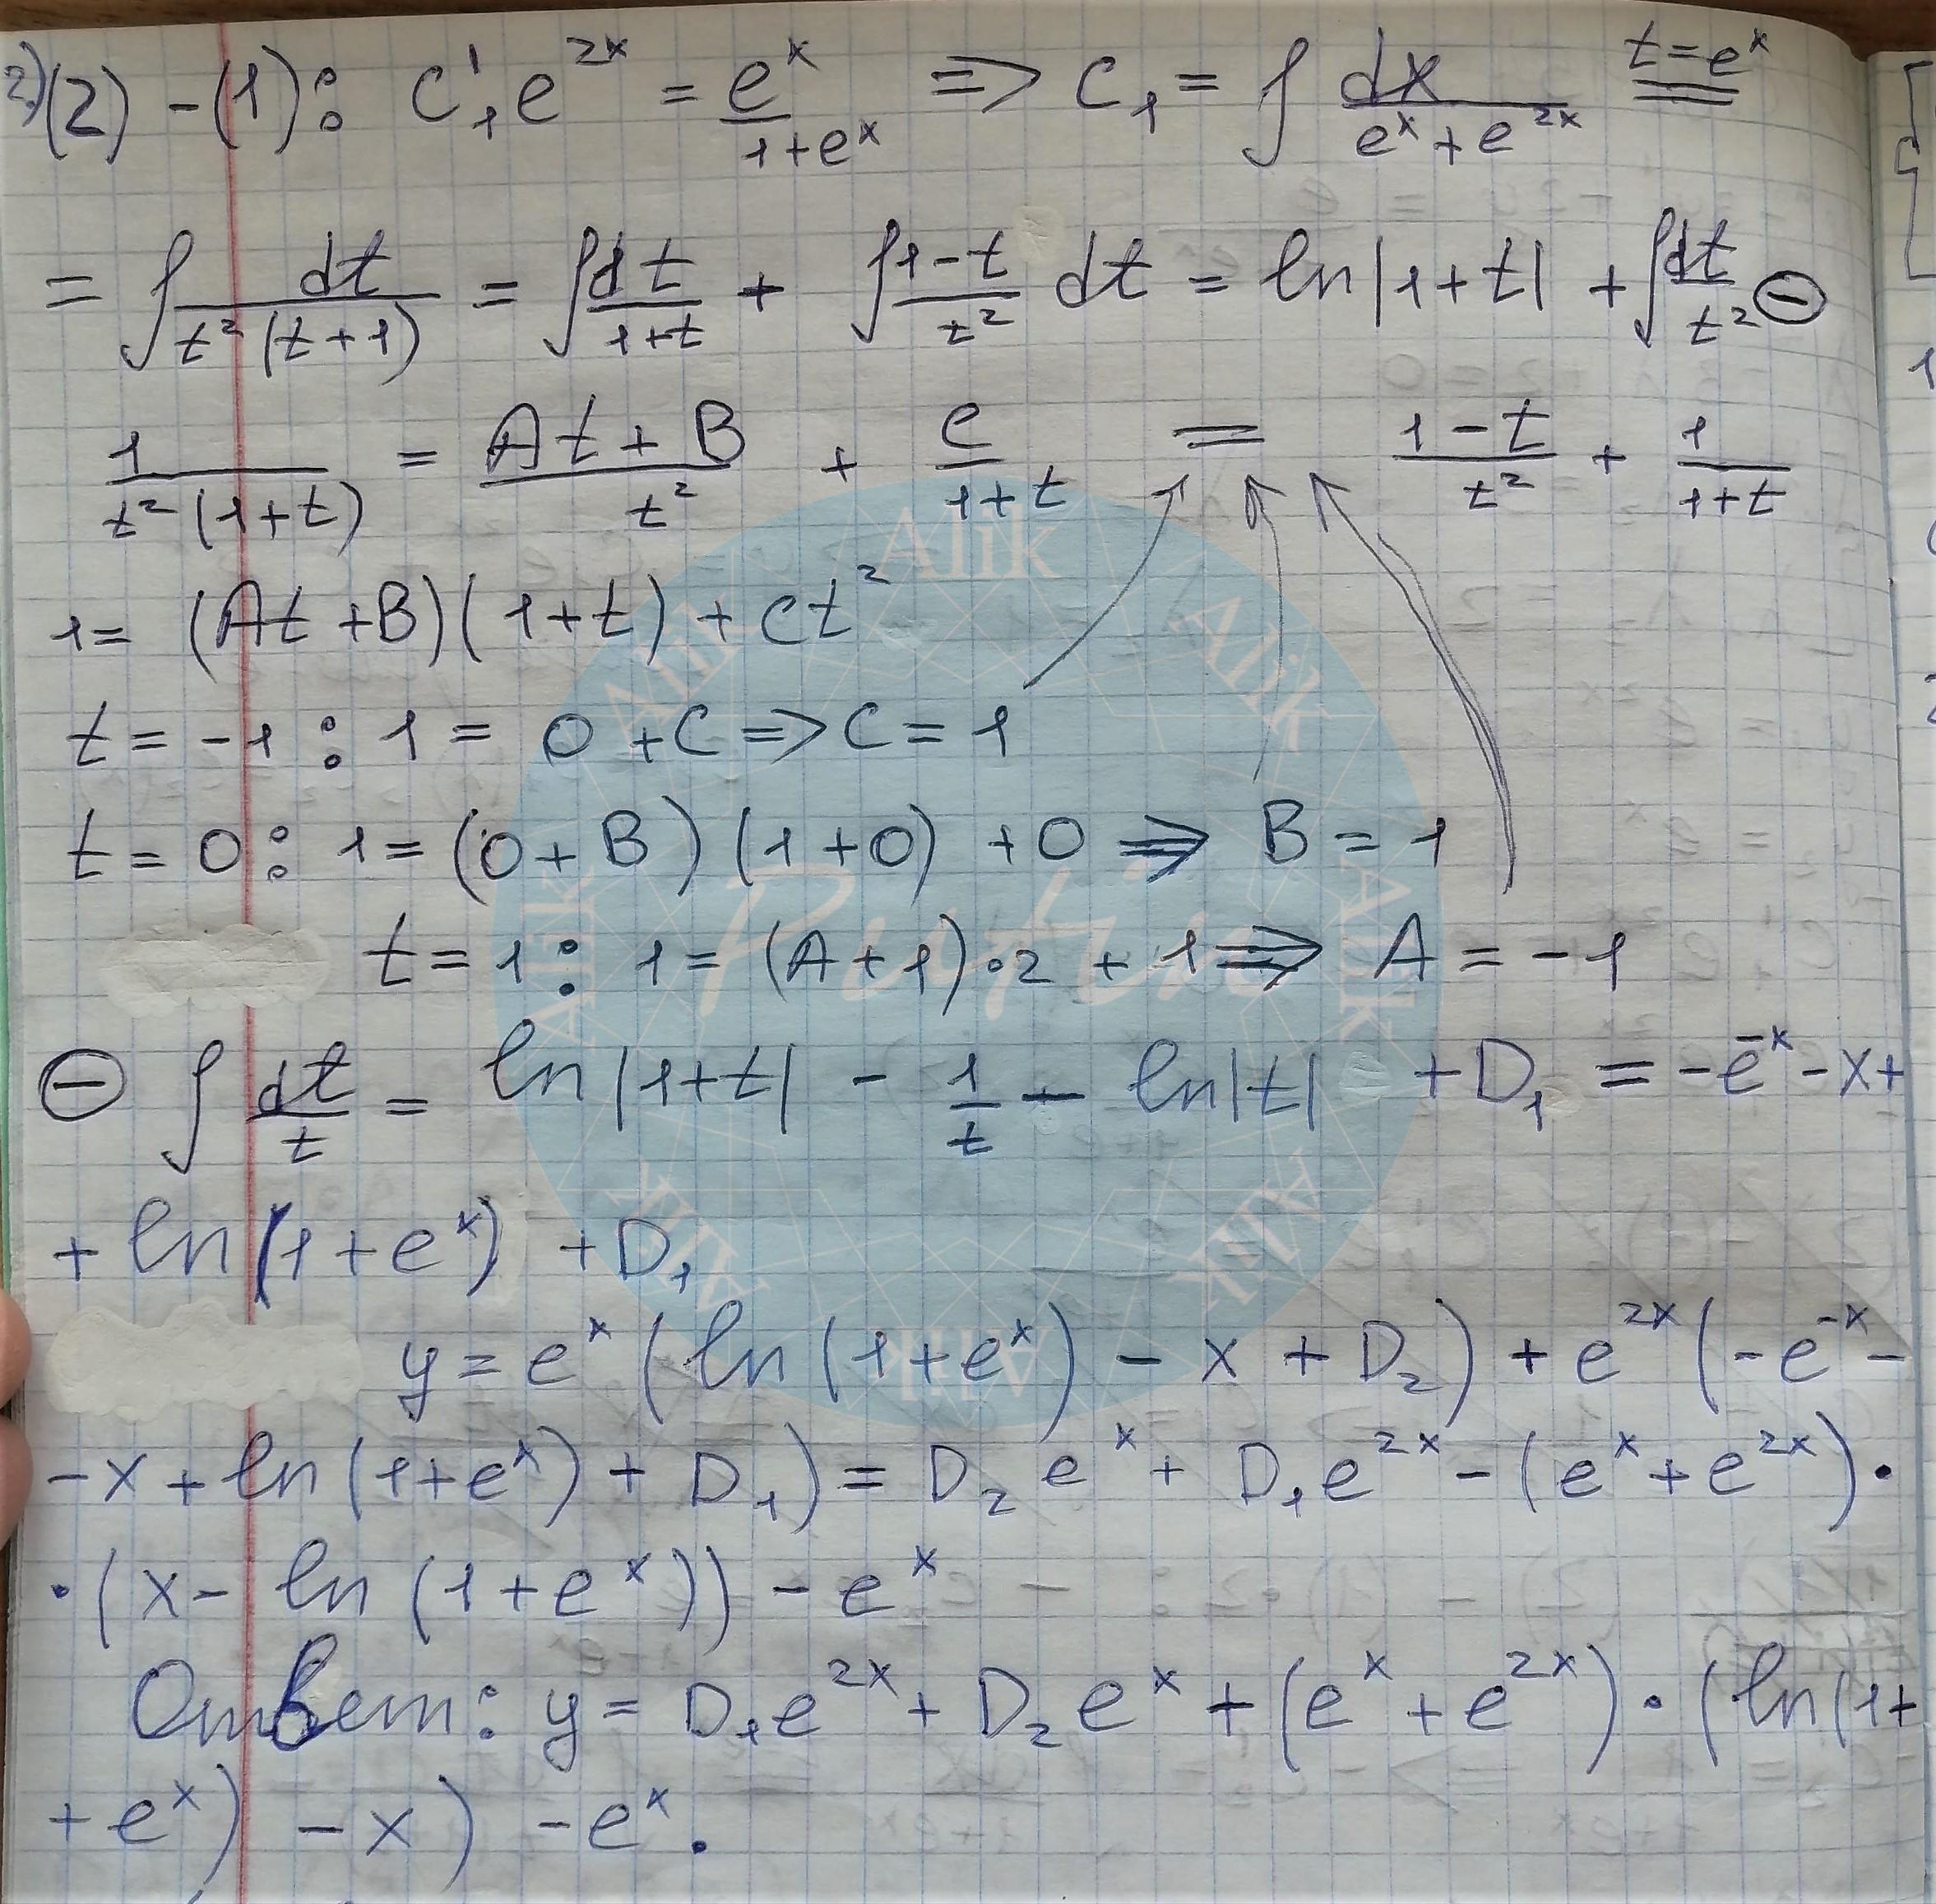 2)(2) - (1): C'₁e^{2x} = e^x/(1+e^x) => C₁ = ∫ dx/(e^x + e^{2x}) \overset{t=e^x}{=}
= ∫ dt/(t²(t+1)) = ∫ dt/(1+t) + ∫ (1-t)/t² dt = ln|1+t| + ∫ dt/t² ⊖
1/(t²(1+t)) = (At+B)/t² + C/(1+t) = (1-t)/t² + 1/(1+t)
1 = (At+B)(1+t) + Ct²
t = -1 : 1 = 0 + C => C = 1
t = 0 : 1 = (0+B)(1+0) + 0 => B = 1
t = 1 : 1 = (A+1)·2 + 1 => A = -1
⊖ ∫ dt/t = ln|1+t| - 1/t - ln|t| + D₁ = -e^{-x} - x +
+ ln(1+e^x) + D₁
y = e^x (ln(1+e^x) - x + D₂) + e^{2x}(-e^{-x} -
- x + ln(1+e^x) + D₁) = D₂e^x + D₁e^{2x} - (e^x + e^{2x}) ·
· (x - ln(1+e^x)) - e^x
Ответ: y = D₁e^{2x} + D₂e^x + (e^x + e^{2x}) · (ln(1+
+ e^x) - x) - e^x.
Alik
Alik
Alik
Alik
Putin
Alik
Alik
Alik
Alik